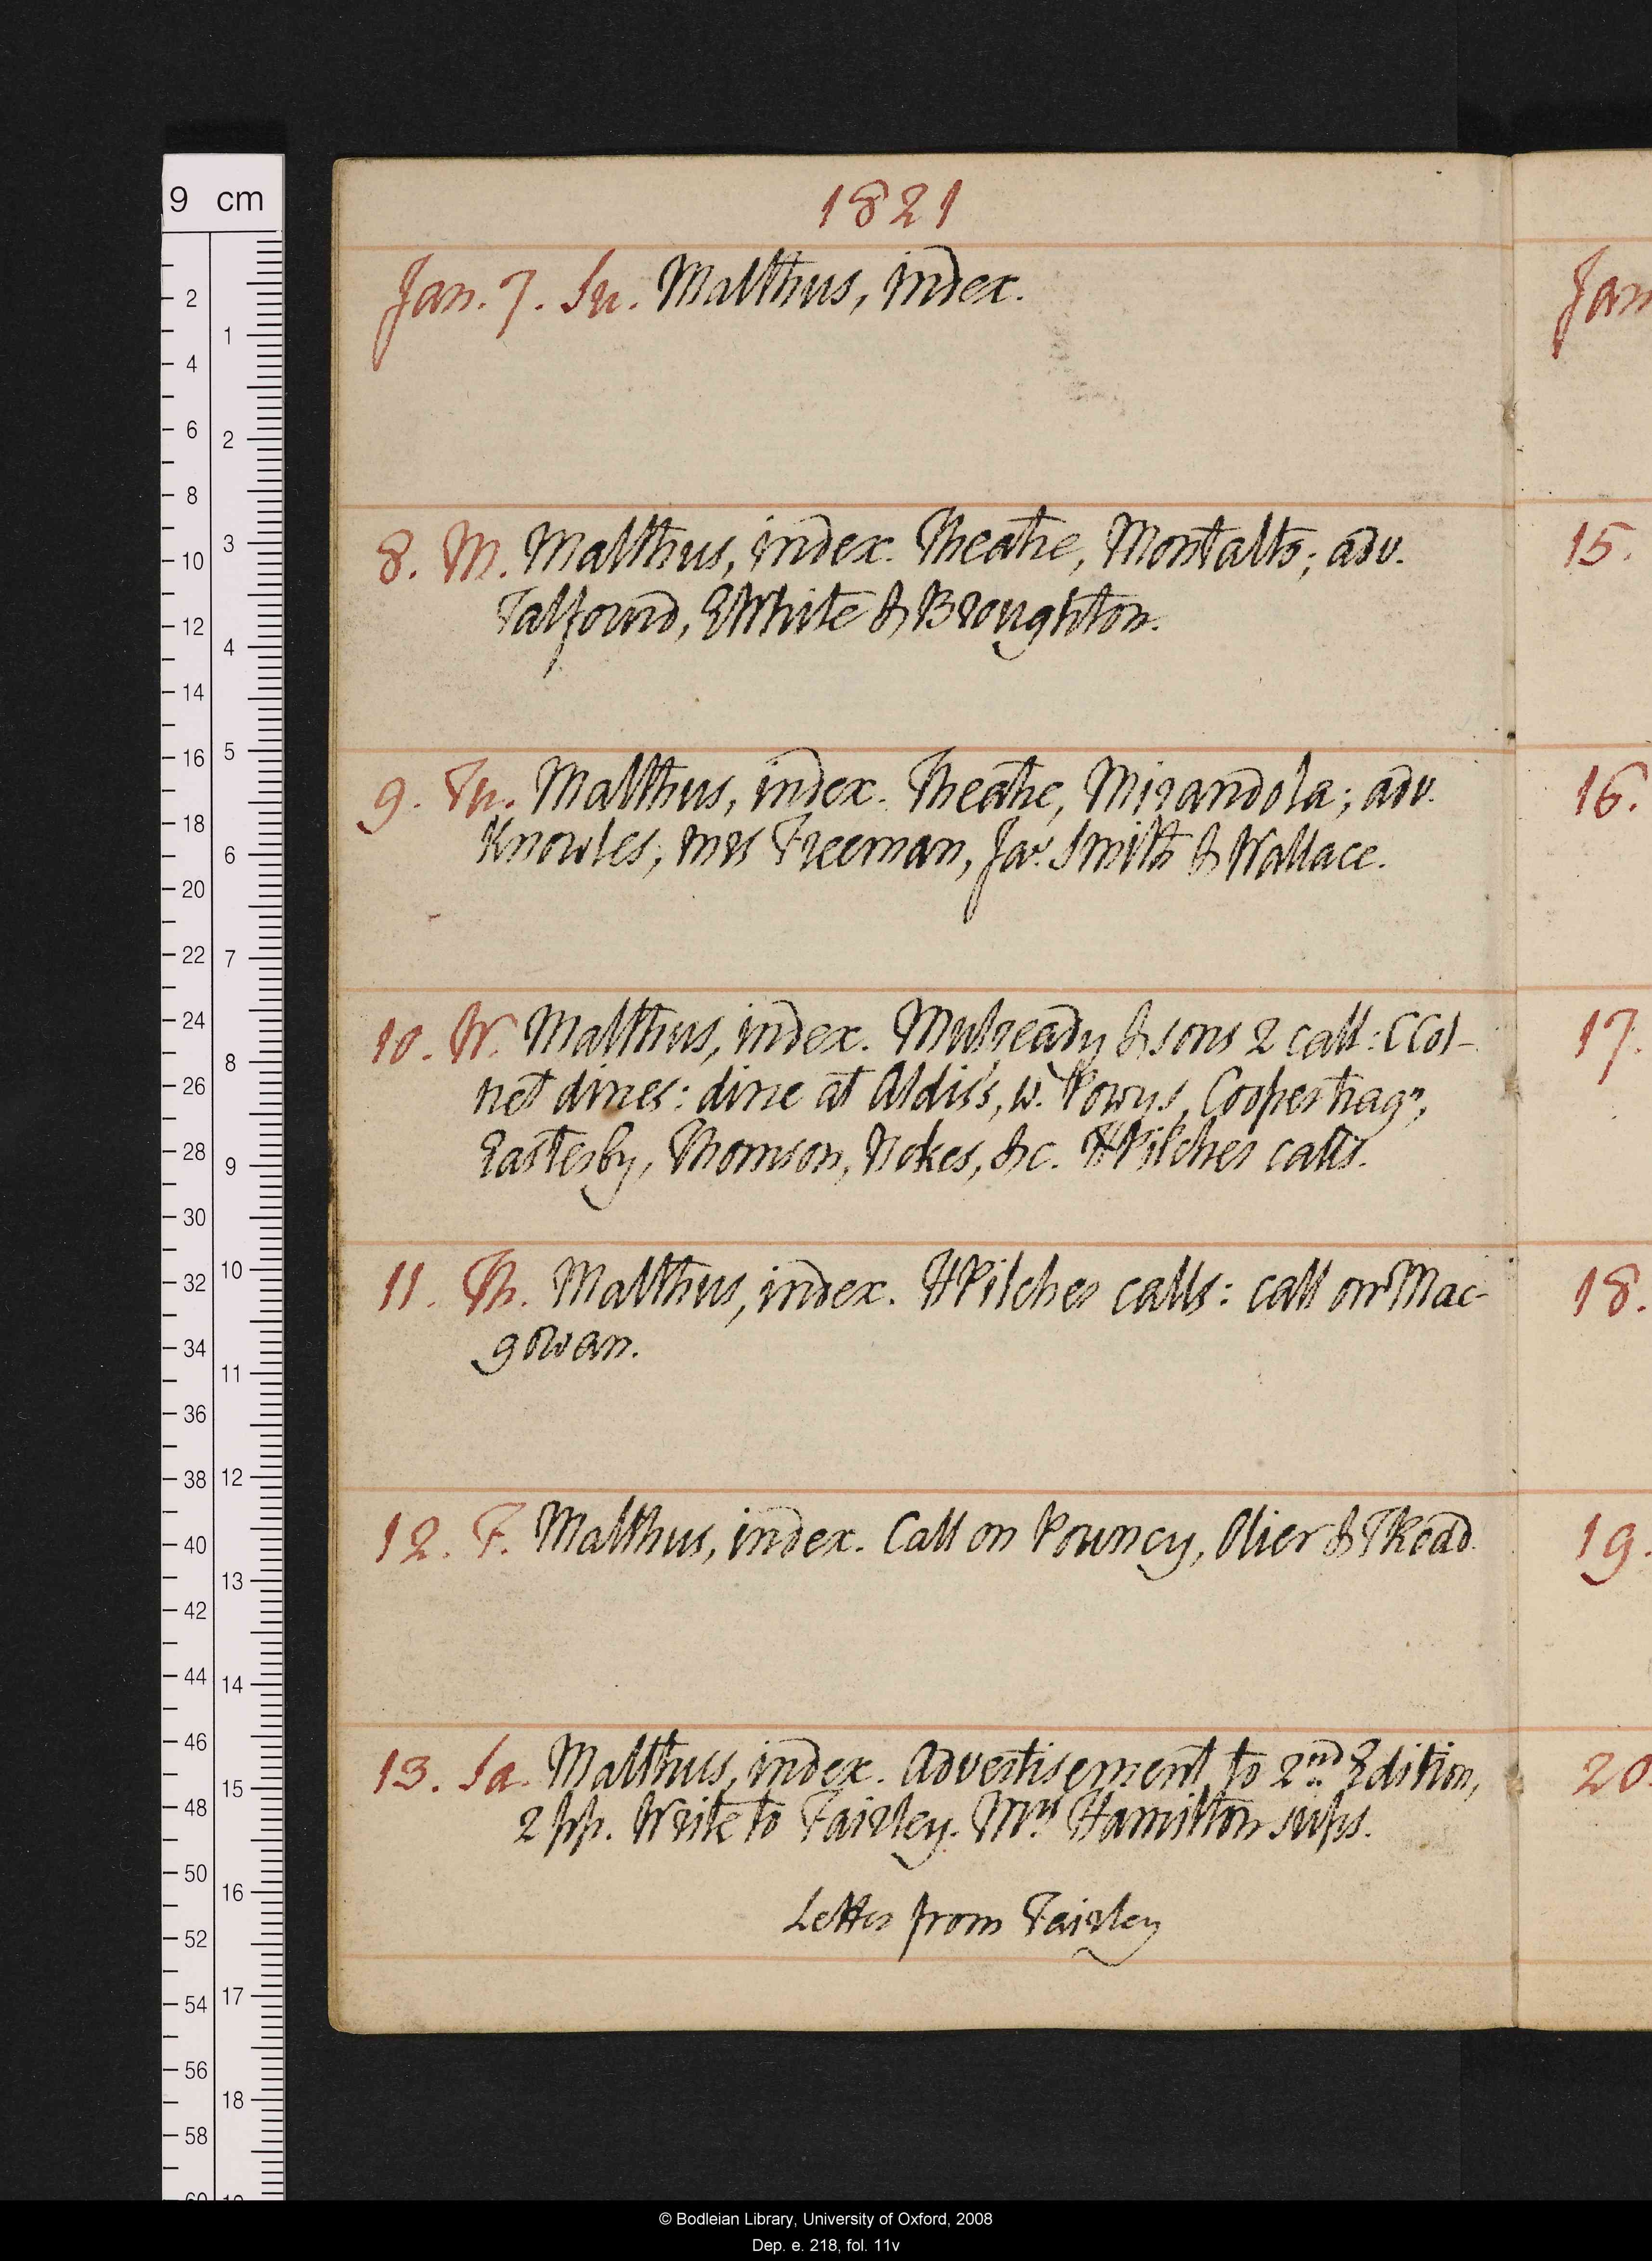 9 cm
1821
Jan. 7. Su. Malthus, index.
8. M. Malthus, index. Theatre, Montalto; adv.
Talfourd, EWhite & Broughton.
9. Tu. Malthus, index. Theatre, Mirandola; adv.
Knowles, Mrs Freeman, Jas. Smith & Wallace.
10. W. Malthus, index. Mulready & sons 2 call: CCol-
net dines: dine at Aldis's, w. Powys, Cooper trag.n,
Easterby, Thomson, Nokes, &c. HPilcher calls.
11. Th. Malthus, index. HPilcher calls: call on Mac-
gowan.
12. F. Malthus, index. Call on Pouncy, Olier & TRead.
13. Sa. Malthus, index. Advertisement to 2nd Edition,
2 pp. Write to Fairley. Mrs Hamilton sups.
Letter from Fairley
Jan
15.
16.
17.
18.
19.
20.
© Bodleian Library, University of Oxford, 2008
Dep. e. 218, fol. 11v